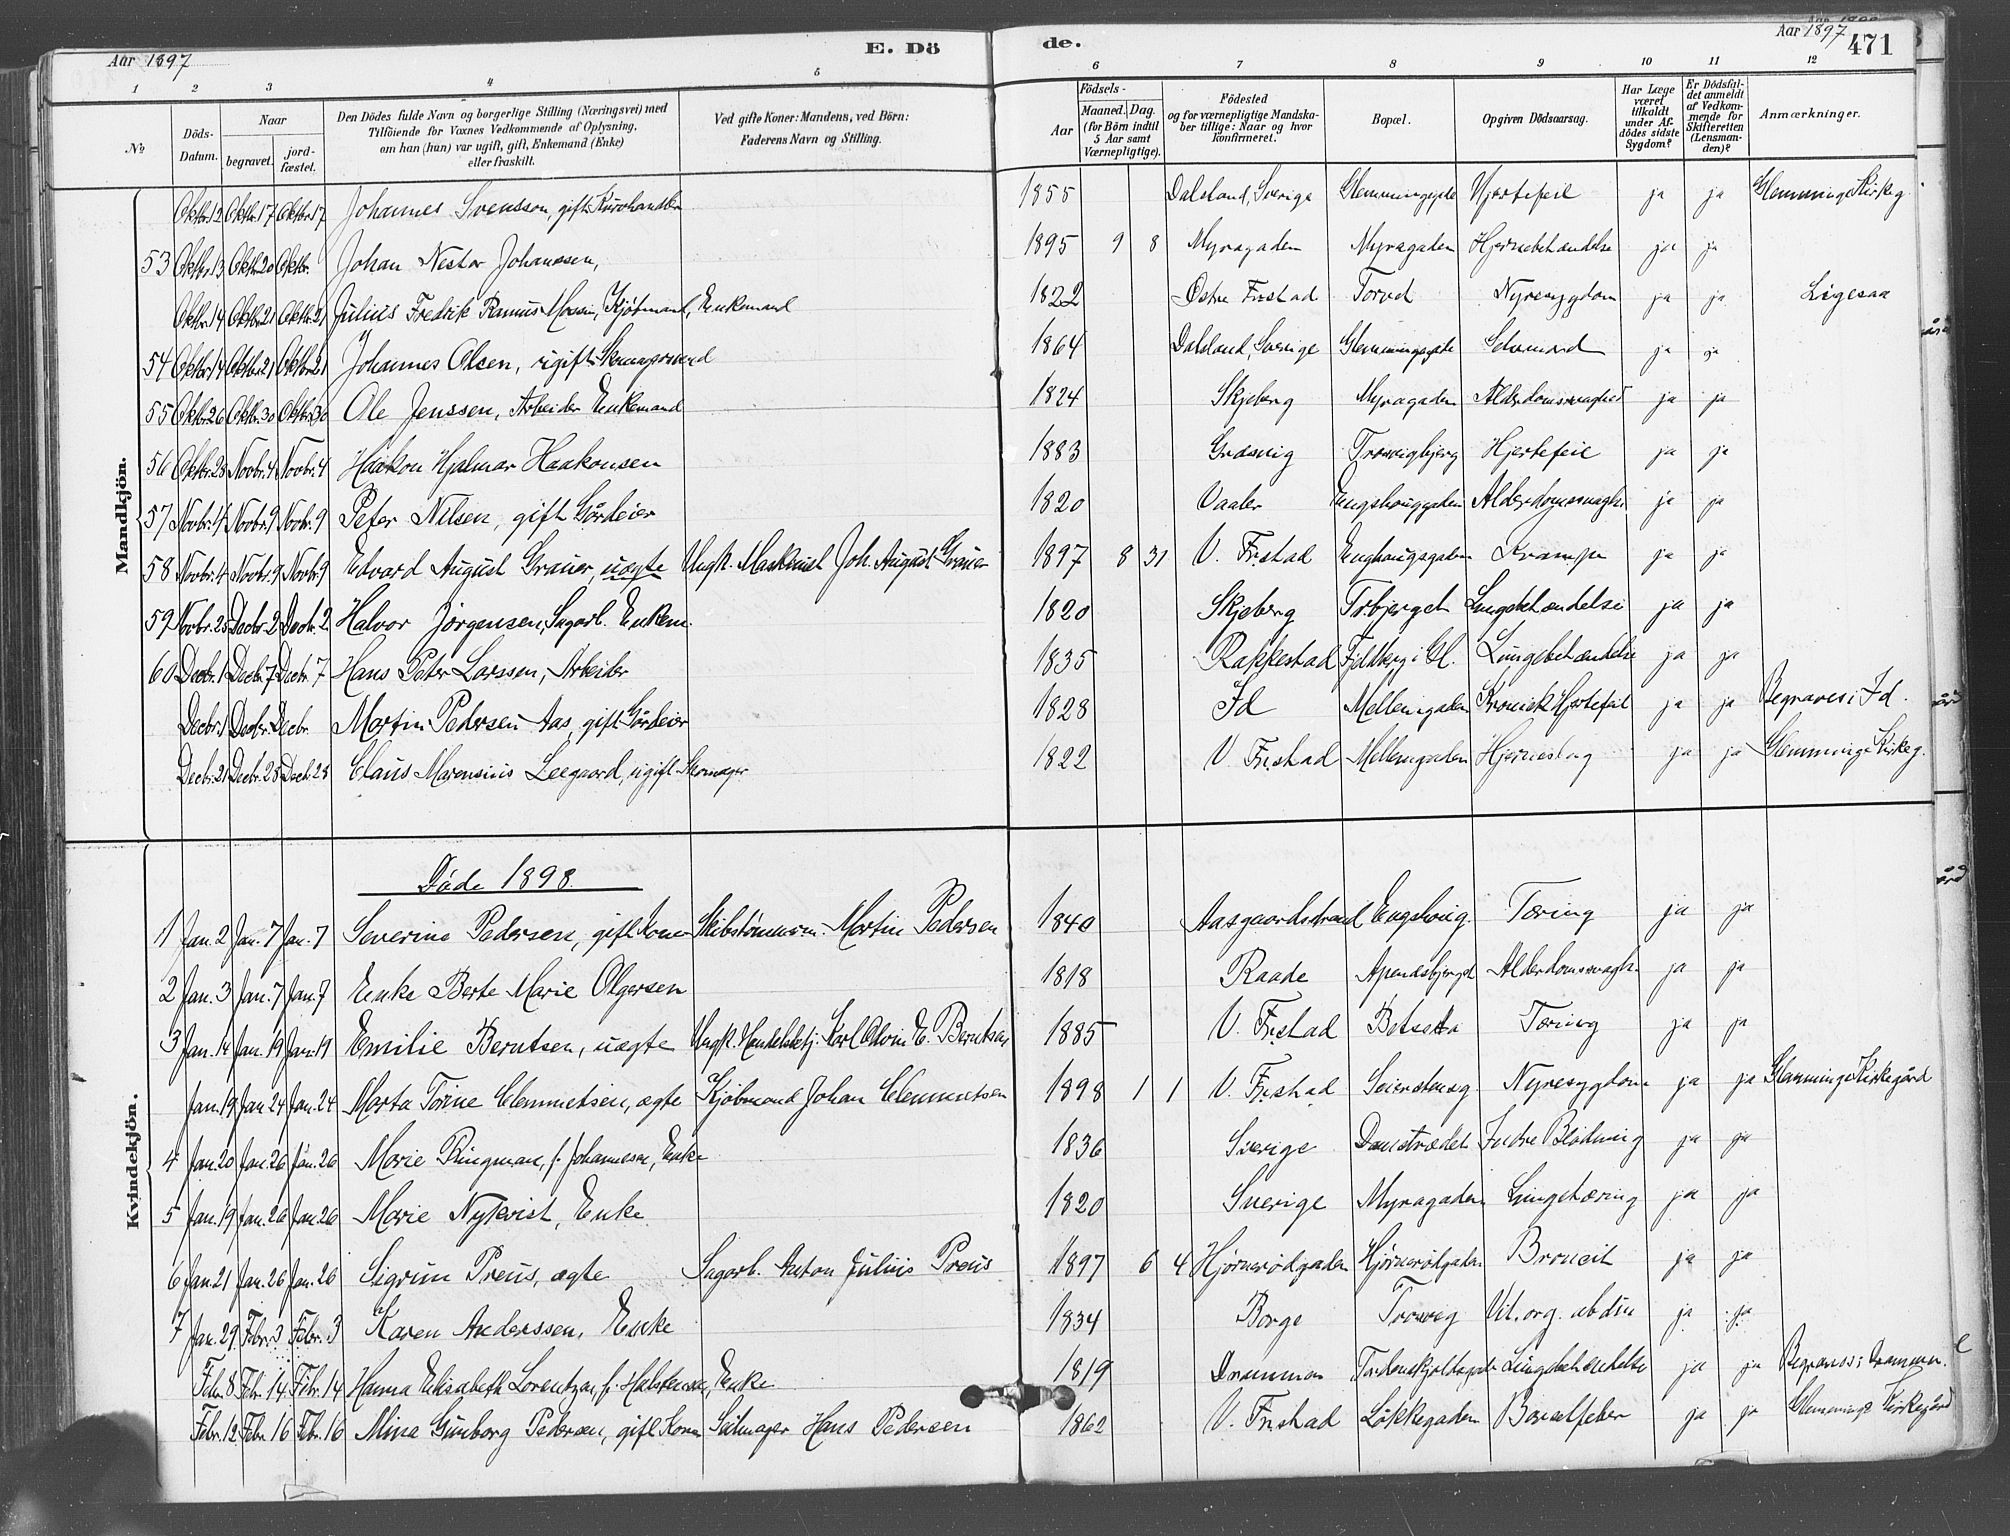 Aar 1897 E. Dö de. Aar 1897 471
1 2 3 4 5 6 7 8 9 10 11 12
No Döds-Datum. Naar begravet. jordfæstet. Den Dödes fulde Navn og borgerlige Stilling (Næringsvei) med Tilföiende for Voxnes Vedkommende af Oplysning, om han (hun) var ugift, gift, Enkemand (Enke) eller fraskilt. Ved gifte Koner: Mandens, ved Börn: Faderens Navn og Stilling. Aar Födsels- Maaned. Dag. (for Börn indtil 5 Aar samt Værnepligtige). Födested og for værnepligtige Mandskaber tillige: Naar og hvor konfirmeret. Bopæl. Opgiven Dödsaarsag. Har Læge været tilkaldt under Afdödes sidste Sygdom? Er Dödsfaldet anmeldt af Vedkommende for Skifteretten (Lensmanden)? Anmærkninger.
Mandkjön.
Oktbr.12 Oktbr.17 Oktbr.17 Johannes Svensson, gift 1855 Dalsland, Sverige Hjertefeil ja ja Glemminge Kirkeg.
53 Oktbr.13 Oktbr.20 Oktbr. Johan Nestor Johanssen, 1895 9 8 Myragaden Myragaden Hjernebetændelse ja ja
Oktbr.14 Oktbr.21 Oktbr.21 Julius Fredrik Rasmus Kjöbmand, Enkemand 1822 Östre Fr.stad Torvet Nyresygdom ja ja Ligesaa
54 Oktbr.14 Oktbr.21 Oktbr.21 Johannes Olsen, ugift 1864 Dalsland, Sverige Selvmord ja ja
55 Oktbr.26 Oktbr.30 Oktbr.30 Ole Jenssen, Arbeider Enkemand 1824 Skjeberg Myragaden Alderdomssvaghed ja ja
56 Oktbr.28 Novbr.4 Novbr.4 Haakon Hjalmar Haakonsen 1883 Græsvig Trosvigbjerg Hjertefeil ja ja
57 Novbr.4 Novbr.9 Novbr.9 Peter Nilsen, gift Gårdeier 1820 Vaaler Enghauggaden Alderdomssvagh. ja ja
58 Novbr.4 Novbr.9 Novbr.9 Edvard August Grauer, uægte Ungk. Maskinist Joh. August Grauer 1897 8 31 V. Fr.stad Enghaugsgaden Krampe ja ja
59 Novbr.25 Decbr.2 Decbr.2 Halvor Jörgensen, Sagarb. Enkem. 1820 Skjeberg Torbjerget Lungebetændelse ja ja
60 Decbr.1 Decbr.7 Decbr.7 Hans Peter Larssen, Arbeider 1835 Rakkestad Fjeldberg i Gl. Lungebetændelse ja ja
Decbr.1 Decbr. Decbr. Martin Pedersen Aas, gift Gårdeier 1828 Id Mellemgaden Kronisk Hjertefeil ja ja Begraves i Id.
Decbr.21 Decbr.28 Decbr.28 Claus Marensius Leegaard, ugift Skomager 1822 V. Fr.stad Mellemgaden Hjerneslag ja ja Glemminge Kirkeg.
Kvindekjön.
Döde 1898.
1 Jan.2 Jan.7 Jan.7 Severine Pedersen, gift Kone Skibstömmerm. Martin Pedersen 1840 Aasgaardstrand Engehaug. Tæring ja ja
2 Jan.3 Jan.7 Jan.7 Enke Berte Marie Olgersen 1818 Raade Apenesbjerget Alderdomssvagh. ja ja
3 Jan.14 Jan.19 Jan.19 Emilie Berntsen, uægte Ungk. Handelsbetj. Karl E. Berntsen 1885 V. Fr.stad Tæring ja ja
Jan.19 Jan.24 Jan.24 Marta Torine Clemmetsen, ægte Kjöbmand Johan Clemmetsen 1898 1 1 V. Fr.stad Seiersborg Nyresygdom ja ja Glemminge Kirkegård
4 Jan.20 Jan.26 Jan.26 Marie Ringman, f. Johannesen, Enke 1836 Sverige Damstrædet Indre Blödning ja ja
5 Jan.19 Jan.26 Jan.26 Marie Nykvist, Enke 1820 Sverige Myragaden Lungetæring ja ja
6 Jan.21 Jan.26 Jan.26 Sigrun Preus, ægte Sagarb. Anton Julius Preus 1897 6 4 Hjörnerödgaden Hjörnerödgaden Broncit ja ja
7 Jan.29 Febr.3 Febr.3 Karen Anderssen, Enke 1834 Borge Trosvig Vit. org. ja ja
Febr.8 Febr.14 Febr.14 Hanna Elisabeth Lorentzen, f. Halstensen, Enke 1819 Drammen Tordenskjoldsgade Lungebetændelse ja ja Begraves i Drammen.
Febr.12 Febr.16 Febr.16 Mina Gunborg Pedersen, gift Kone Seilmager Hans Pedersen 1862 V. Fr.stad Lökkegaden Barselfeber ja ja Glemminge Kirkegård